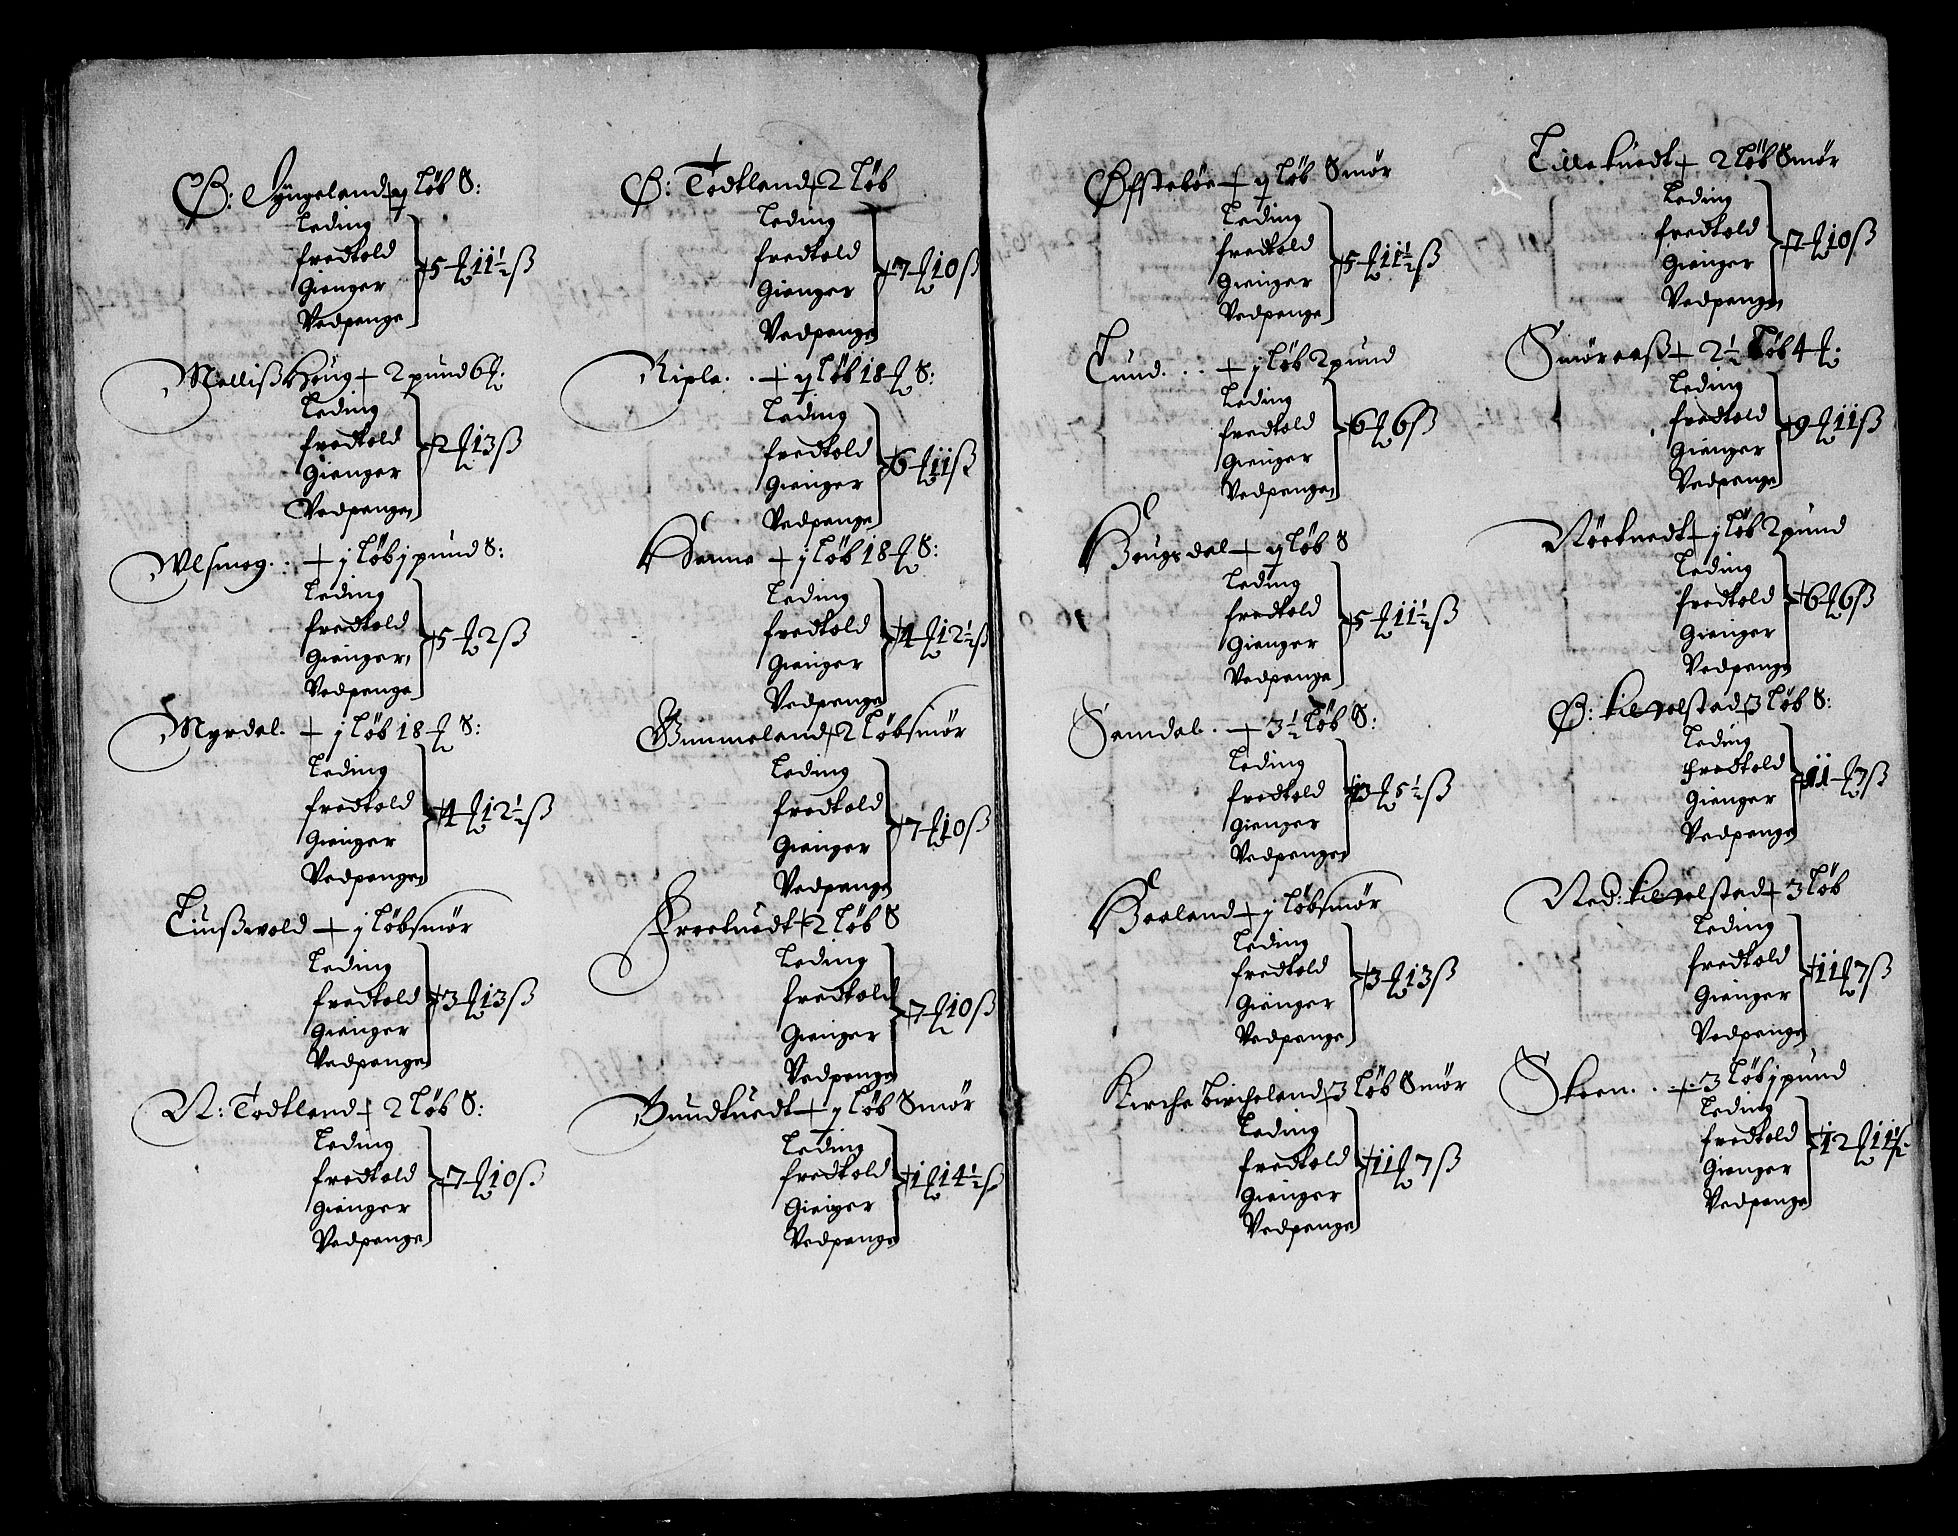 Ø: Syngeland + ɉ Løb S:
Leding
fredtold
Gienger
Vedpenge
5 ℔ 11½ ß
Mellißhoug + 2 pund 6 ℔:
Leding
fredtold
Gienger
Vedpenge
2 ℔ 13 ß
Wlsmog. . + j Løb j pund S:
Leding
fredtold
Gienger
Vedpenge
5 ℔ 2 ß
Myrdal. + j Løb 18 ℔ S:
Leding
fredtold
Gienger
Vedpenge
4 ℔ 12½ ß
Tinßwold + j Løb smør
Leding
fredtold
Gienger
Vedpenge
3 ℔ 13 ß
N: Todtland + 2 Løb S:
Leding
fredtold
Gienger
Vedpenge
7 ℔ 10 ß.
Ø: Todtland + 2 Løb
Leding
fredtold
Gienger
Vedpenge
7 ℔ 10 ß
Riple. . + ɉ Løb 18 ℔ S:
Leding
fredtold
Gienger
Vedpenge
6 ℔ 11 ß
Sanne + j Løb 18 ℔ S:
Leding
fredtold
Gienger
Vedpenge
4 ℔ 12½ ß
Gimmeland + 2 Løb smør
Leding
fredtold
Gienger
Vedpenge
7 ℔ 10 ß
Freetuedt + 2 Løb S
Leding
fredtold
Gienger
Vedpenge
7 ℔ 10 ß
Bundtuedt + ɉ Løb Smør
Leding
fredtold
Gienger
Vedpenge
1 ℔ 14½ ß
Øfstebøe + ɉ Løb Smør
Leding
fredtold
Gienger
Vedpenge
5 ℔ 11½ ß
Lund. . . + j Løb 2 pund
Leding
fredtold
Gienger
Vedpenge
6 ℔ 6 ß
Hougsdal + ɉ Løb S
Leding
fredtold
Gienger
Vedpenge
5 ℔ 11½ ß
Samdal. + 3½ Løb S:
Leding
fredtold
Gienger
Vedpenge
13 ℔ 5½ ß
Haaland + j Løb smør
Leding
fredtold
Gienger
Vedpenge
3 ℔ 13 ß
Kirche Bircheland + 3 Løb Smør
Leding
fredtold
Gienger
Vedpenge
11 ℔ 7 ß
Lilletuedt + 2 Løb Smør
Leding
fredtold
Gienger
Vedpenge
7 ℔ 10 ß
Smøraaß + 2½ Løb 4 ℔:
Leding
fredtold
Gienger
Vedpenge
9 ℔ 11 ß
Nøretuedt + j Løb 2 pund
Leding
fredtold
Gienger
Vedpenge
6 ℔ 6 ß
Ø: Titlestad + 3 Løb S:
Leding
fredtold
Gienger
Vedpenge
11 ℔ 7 ß
Ned: Titlestad + 3 Løb
Leding
fredtold
Gienger
Vedpenge
11 ℔ 7 ß
Skeen. . + 3 Løb j pund
Leding
fredtold
Gienger
Vedpenge
12 ℔ 11½ ß